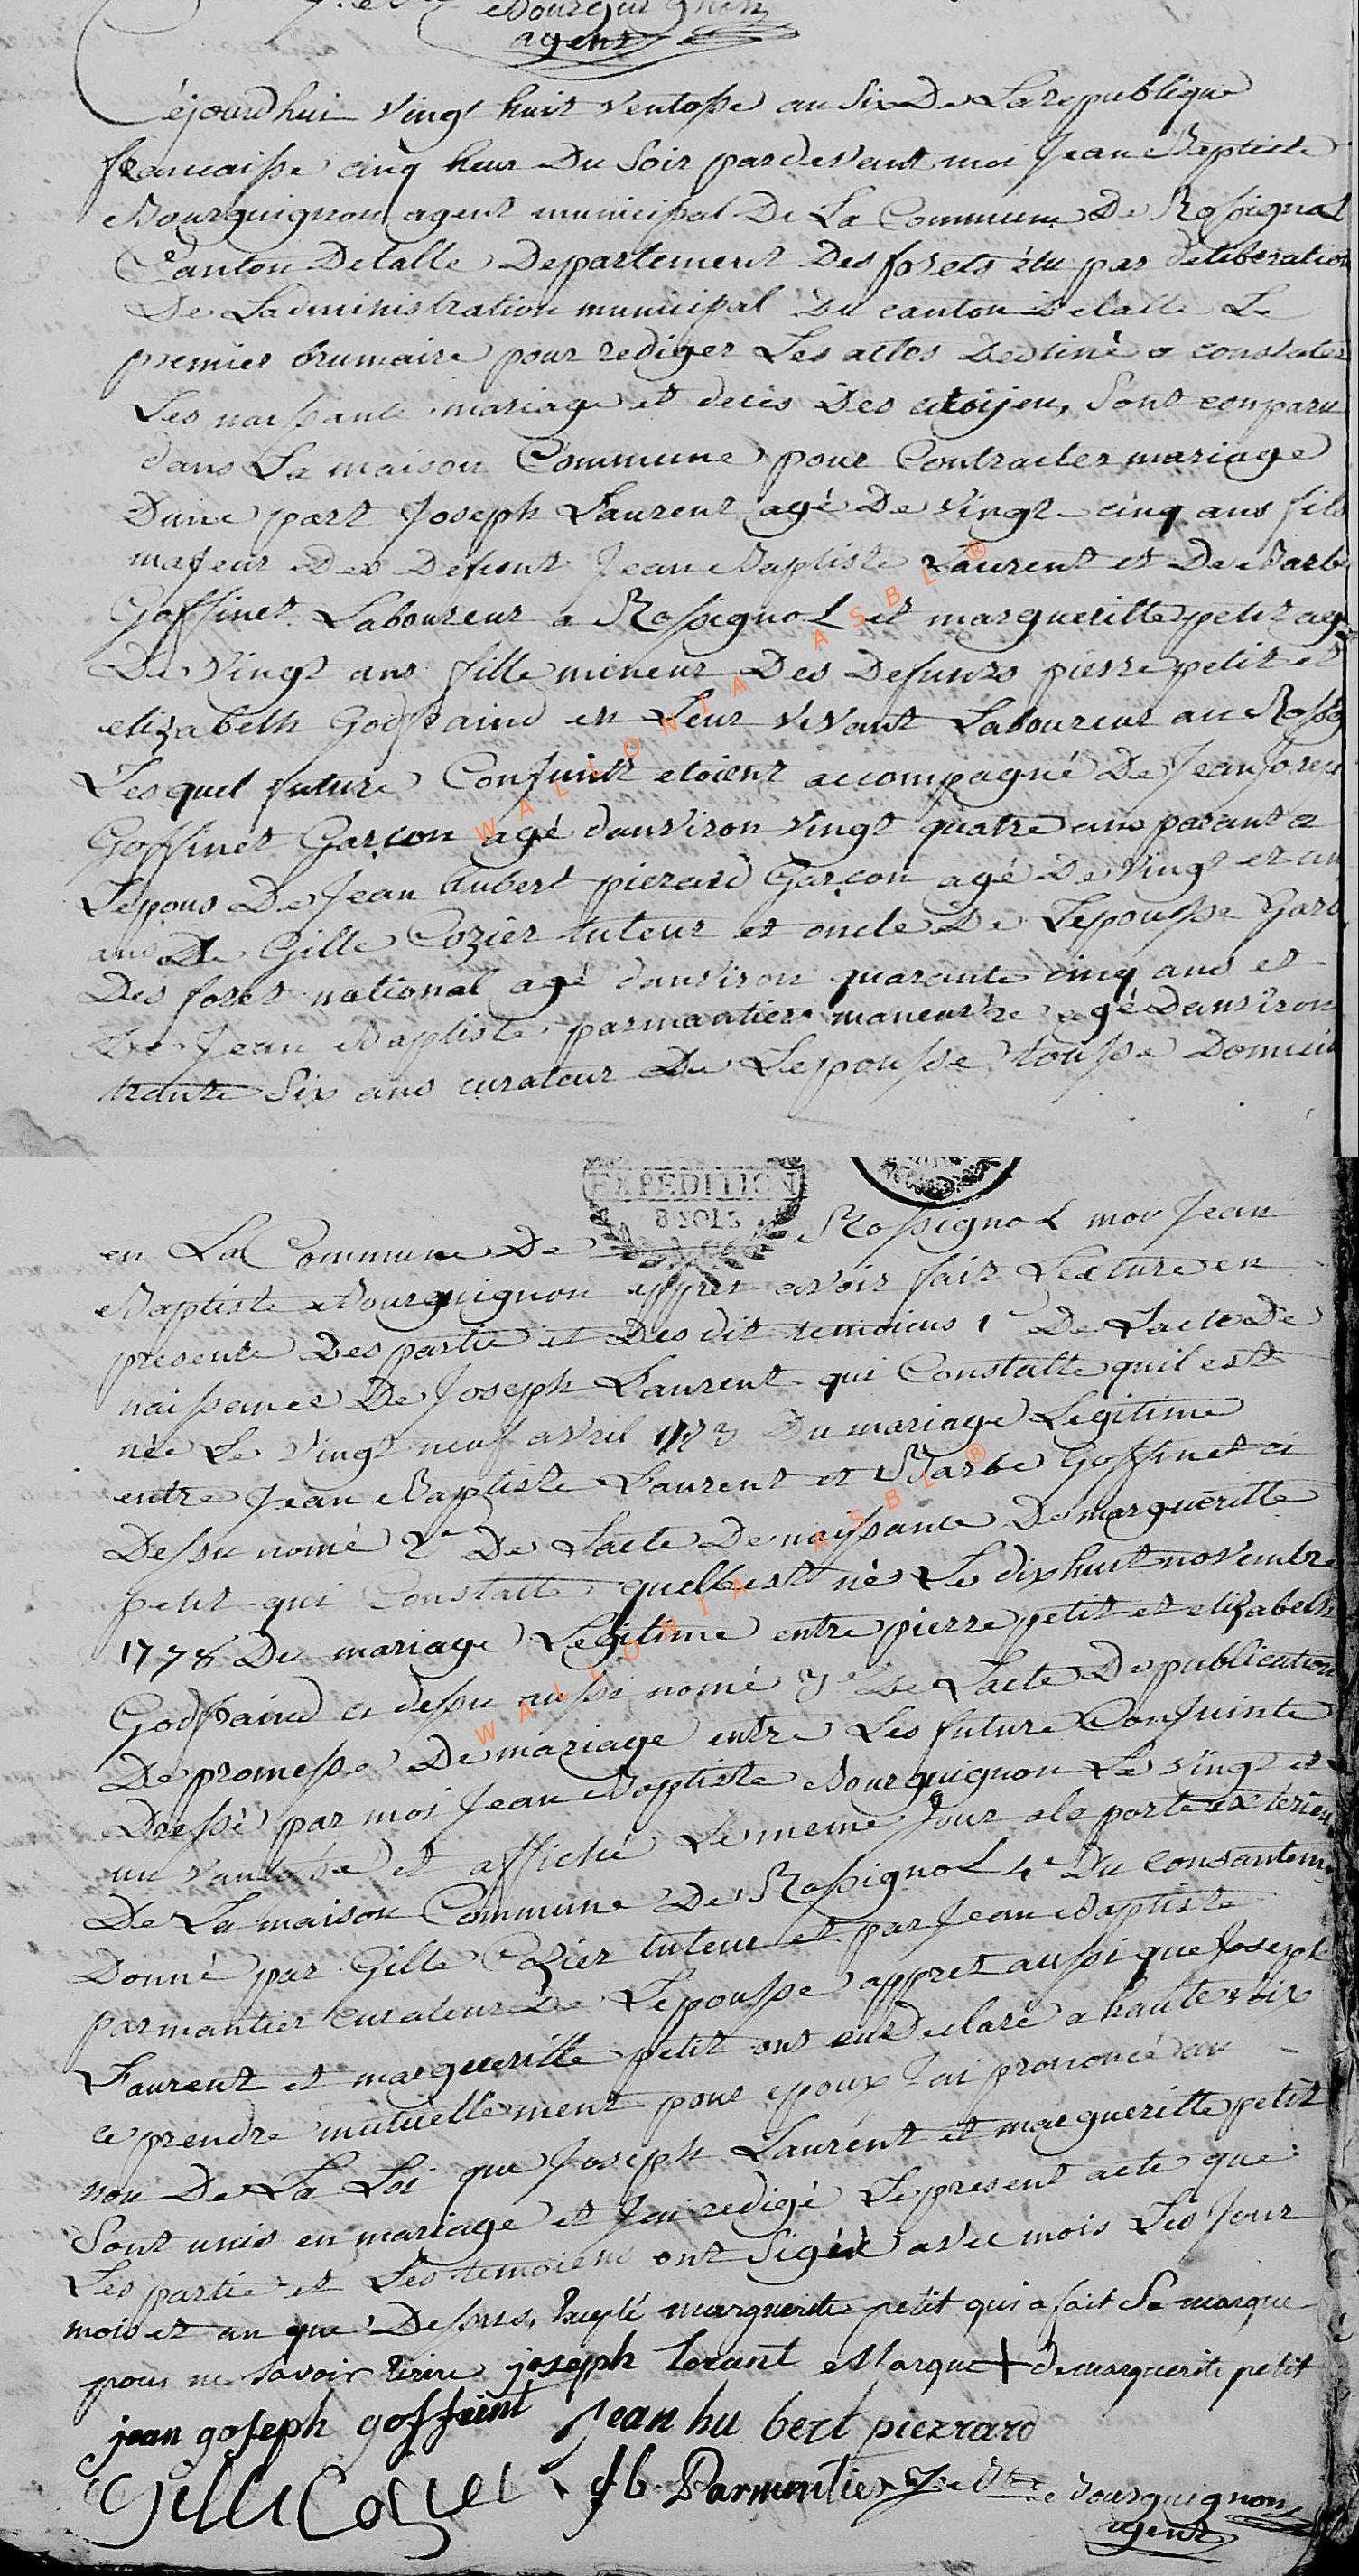 Bourguignon
agent
Cejourdhui vingt huit ventosse an Six De La republique
francaisse cinq heur Du Soir pardevant moi Jean Baptiste
Bourguignon agent municipal De La Commune De Rossignol
Canton Detalle Departement Des forets élu par deliberation
De Ladministration municipal Du canton Detalle Le
premier brumaire pour rediger Les attes Destiné a constater
Les naissante mariage et decés Des citoijen, Sont conparu
dans La maison Commune pour Contracter mariage
Dune part Joseph Laurent agé De vingt cinq ans fils
majeur Des Defunt Jean Baptiste Laurent et De Barbe
Goffinet Laboureur a Rossignol et margueritte petit agé
De vingt ans fille mineur Des Defunts pierre petit et
elizabeth Godfraind en Leur vivant Laboureur au Rossig
Lesquel future Conjuint etoient accompagné De Jean Joseph
Goffinet Garcon agé danviron vingt quatre ans parant a
Lepous De Jean hubert pierard Garcon agé De vingt et un
ans De Gille Cozier tuteur et oncle De Lepousse Gard
Des foret national agé danviron quarante cinq ans et
De Jean Baptiste parmantier maneuvre agé Danviron
trente Six ans curateur De Lepousse tousse Domicil
EXPEDITION
8 SOLS
en La Commune De Rossignol moi Jean
Baptiste Bourguignon appres avoir fait Lecture en
presente Des partie et Des dit temoiens 1e De Lacte De
naissance De Joseph Laurent qui Constatte quil est
née Le vingt neuf avril 1773 Du mariage Legitime
entre Jean Baptiste Laurent et Barbe Goffinet ci
Dessu nomé 2e De Lacte De naissante De margueritte
petit qui Constatte quelle est nés Le dix huit novembre
1778 Du mariage Legitime entre pierre petit et elizabeth
Godfraind ci dessu aussi nomé 3e De Lacte De publication
De promesse De mariage entre Les future Conjuinte
Dressé par moi Jean Baptiste Bourguignon Le vingt et
un vantosse et affiché Le meme Jour ala porte exterieu
De La maison Commune De Rossignol 4e Du consantem
Donné par Gille Cozier tuteur et par Jean Baptiste
parmantier curateur De Lepousse appret aussi que Joseph
Laurent et marguerille petit ont eut Declaré a haute voix
ce prendre mutuellement pour epoux Jai prononcé au
nom De La Loi que Joseph Laurent et marguerille petit
Sont unis en mariage et Jai redigé Le present acte que
Les partie et Les temoiens ont Signé avec mois Les Jour
mois et an que Dessus, Excepté marguerite petit qui a fait Sa marque
pour ne savoir Ecrire joseph lorant Marque + de marguerite petit
jean joseph goffint jean hu bert pierrard
Gille Cozier Jb. Parmentier J. Bte Bourguignon
agent
WALLONIA ASBL®
WALLONIA ASBL®